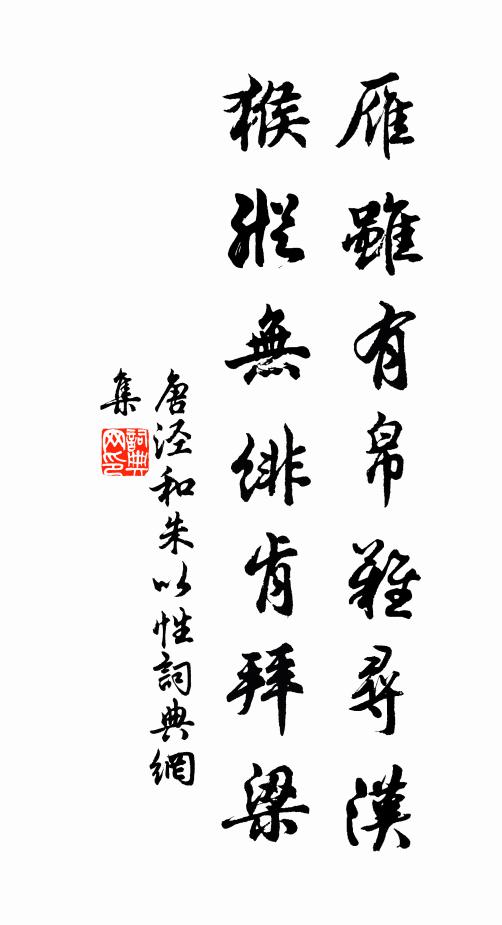 雁雖有帛難尋漢
猴縱無緋肯拜梁
唐泾和朱以性詞典網
集
詞典网印